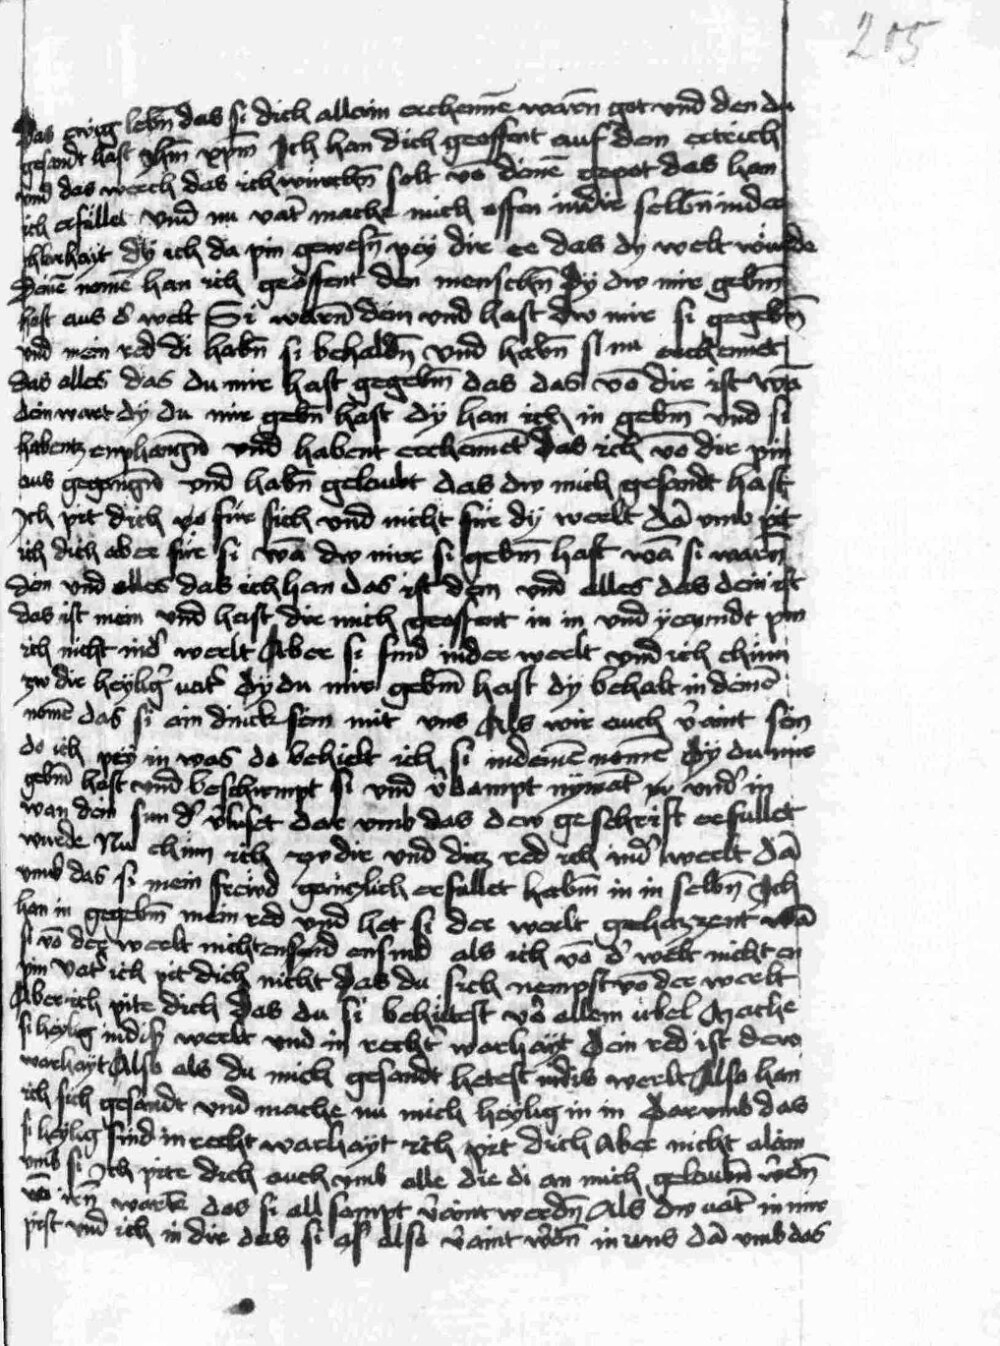 205
Das ewig lebn̄ das si dich allain erchenne warn̄ got vnd den du
gesandt hast Jhm̄ xpm̄ Ich han dich geoffent auf dem ertrich
vnd das werch das ich wurchn̄ solt vō dinē gepot das han
ich erfullet vnd nu vat̄ mache mich offen in dir selbn̄ in der
chlorhayt dy ich da pin gewesn̄ pey dir ee das dy welt wurde
Deinē namē han ich geoffent den menschn̄ Dy dw mir gebm̄
hast aus d̄ welt Si warn̄ dein vnd hast dw mir si gegebn̄
vnd mein red di habn̄ si behaldn̄ vnd habn̄ si nu erchennet
das alles das du mir hast gegebm̄ das das vō dir ist wā
dein wart dy du mir gebn̄ hast dy han ich in gebm̄ vnd si
habentz enphangn̄ vnd habent erchennet das ich vō dir pin
aus gegangn̄ vnd habn̄ gelaubt das dw mich gesandt hast
Ich pit dich vo für sich vnd nicht für dy werlt dā vmb pit
ich dich aber für si wā dw mir si gebm̄ hast wā si warn̄
dein vnd alles das ich han das ist dein vnd alles das dein ist
das ist mein vnd hast dir mich geoffent in in vnd yczundt pin
ich nicht in d̄ werlt Aber si sind in der werlt vnd ich chum
zw dir heyliḡ vat̄ Dy du mir gebm̄ hast dy behalt in deinē
namē das si ain dinck sein mit vns Als wir auch v̄aint sein
do ich pey in was do behielt ich si in deinē namē Dy du mir
gebm̄ hast vnd beschirmpt si vnd v̄dampt nymāt vnd̄ in
wan dein sun d̄ v̄luset dar vmb das dew geschrift erfullet
wurde Nu chum ich zw dir vnd dicz red ich in d̄ werlt dā
vmb das si mein frewd genczlich erfullet habm̄ in in selbn̄ Ich
han in gegebm̄ mein red vnd het si der werlt gehazzent wā
si vō der werlt nicht ensind als ich vō d̄ welt nicht en
pin vat̄ ich pit dich nicht das du sich nempst vō der werlt
Aber ich pite dich das du si behütest vō allem übel Mache
si heylig in dis̄ werlt vnd in recht̄ warhayt Dein red ist dew
warhayt Also als du mich gesandt hetest in dis werlt Also han
ich sich gesandt vnd mache nu mich heylig in in Darumb das
si heylig sind in recht warhayt ich pit dich aber nicht alain
vmb si Ich pite dich auch vmb alle die di an mich gelaubn̄ w̄dn̄
vō irn̄ wartē das si all sampt v̄aint werdn̄ Als dw vat̄ in mir
pist vnd ich in dir das si also v̄aint w̄dn̄ in vns dā vmb das